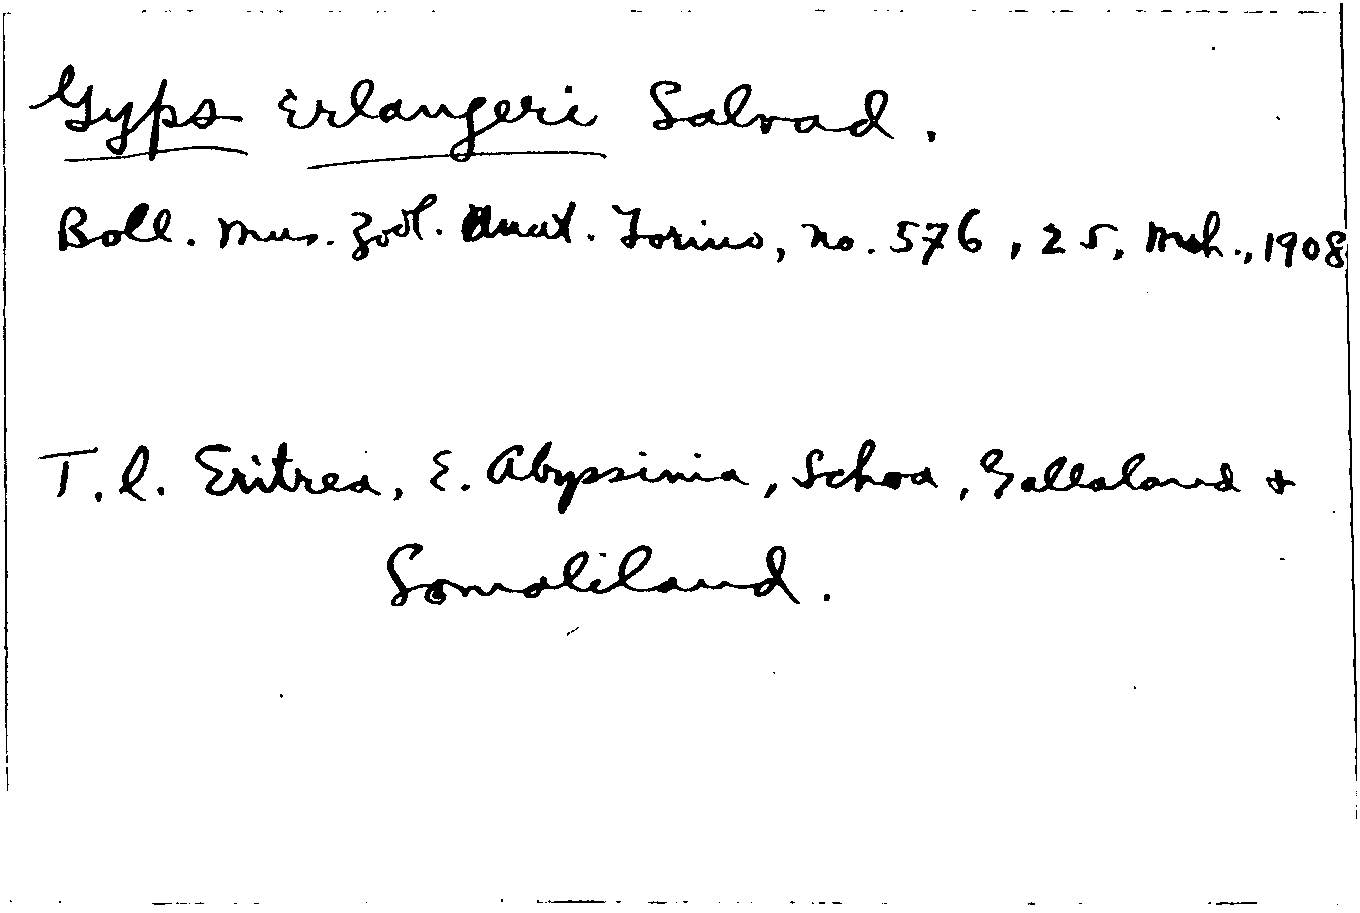 Gyps Erlangeri Salvad.
Boll. Mus. Zool. Anat. Torino, no. 576, 25, Mch., 1908
T. l. Eritrea, E. Abyssinia, Schoa, Gallaland &
Somaliland.